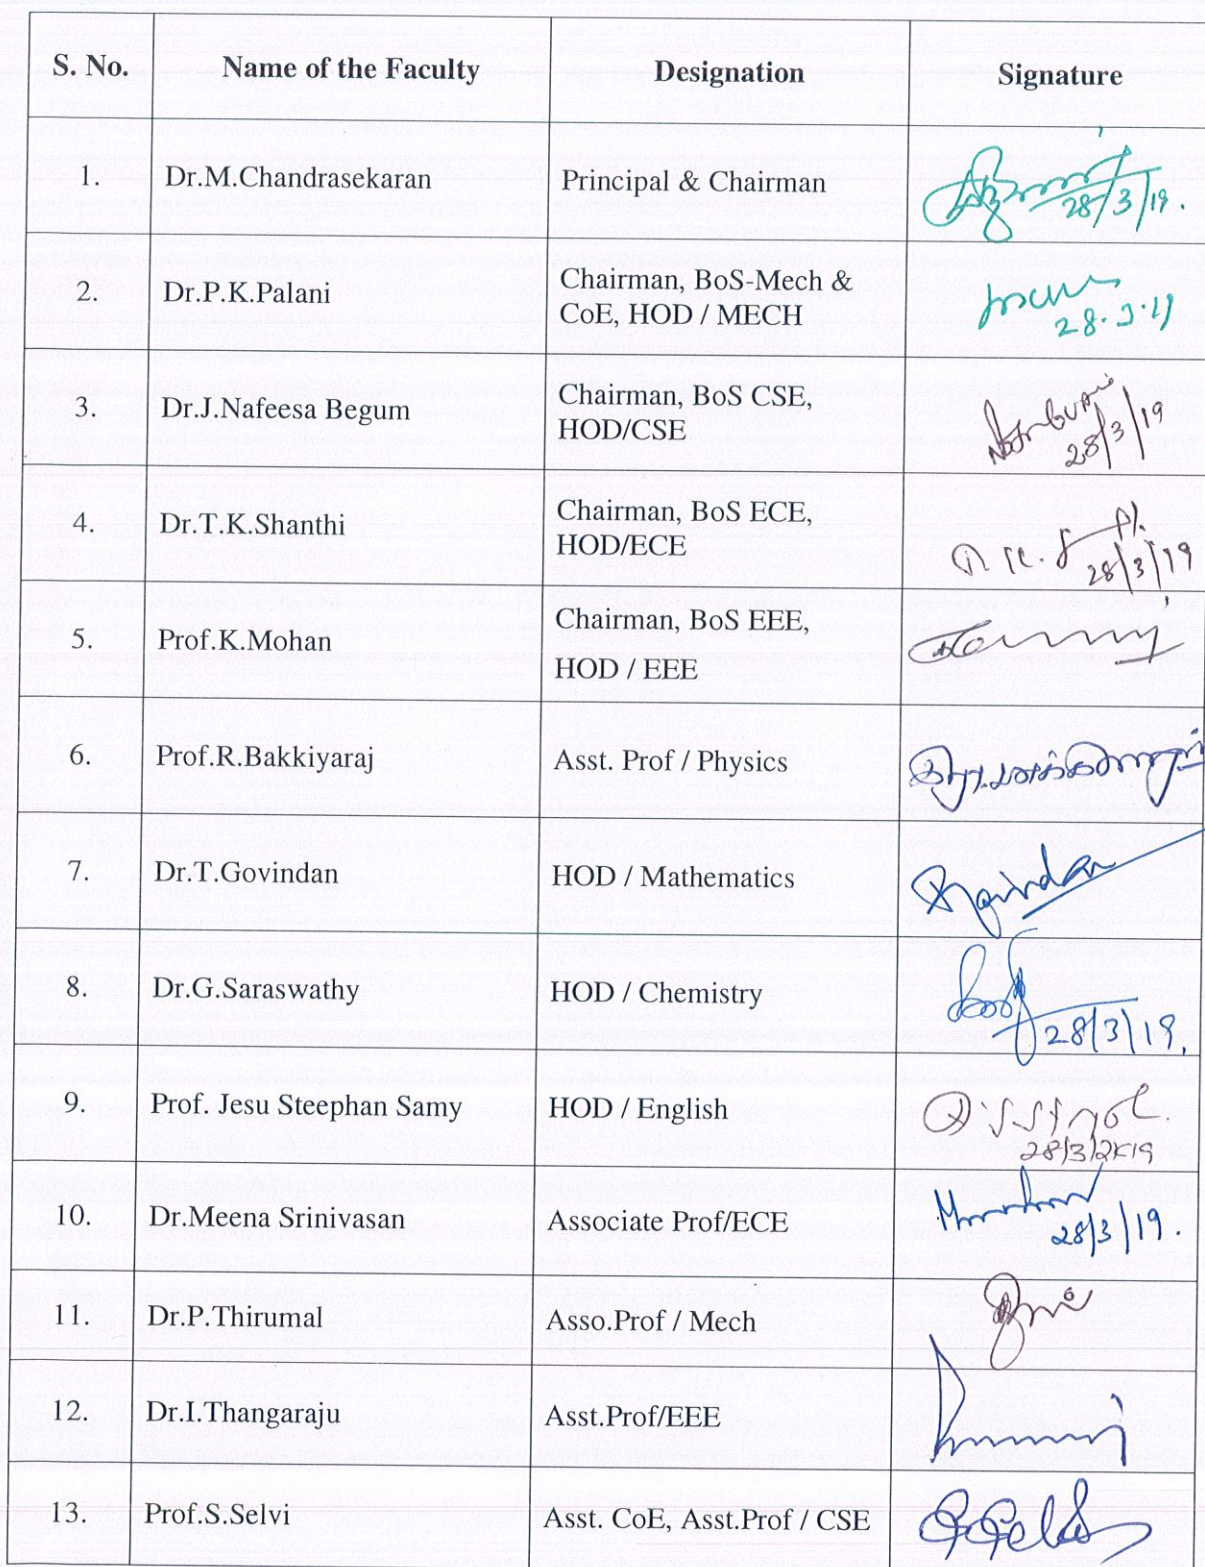 S. No. Name of the Faculty Designation Signature
1. Dr.M.Chandrasekaran Principal & Chairman
28/3/19.
2. Dr.P.K.Palani Chairman, BoS-Mech &
CoE, HOD / MECH
28.3.19
3. Dr.J.Nafeesa Begum Chairman, BoS CSE,
HOD/CSE
28/3/19
4. Dr.T.K.Shanthi Chairman, BoS ECE,
HOD/ECE
28/3/19
5. Prof.K.Mohan Chairman, BoS EEE,
HOD / EEE
6. Prof.R.Bakkiyaraj Asst. Prof / Physics
7. Dr.T.Govindan HOD / Mathematics
8. Dr.G.Saraswathy HOD / Chemistry
28/3/19.
9. Prof. Jesu Steephan Samy HOD / English
28/3/2K19
10. Dr.Meena Srinivasan Associate Prof/ECE
28/3/19.
11. Dr.P.Thirumal Asso.Prof / Mech
12. Dr.I.Thangaraju Asst.Prof/EEE
13. Prof.S.Selvi Asst. CoE, Asst.Prof / CSE